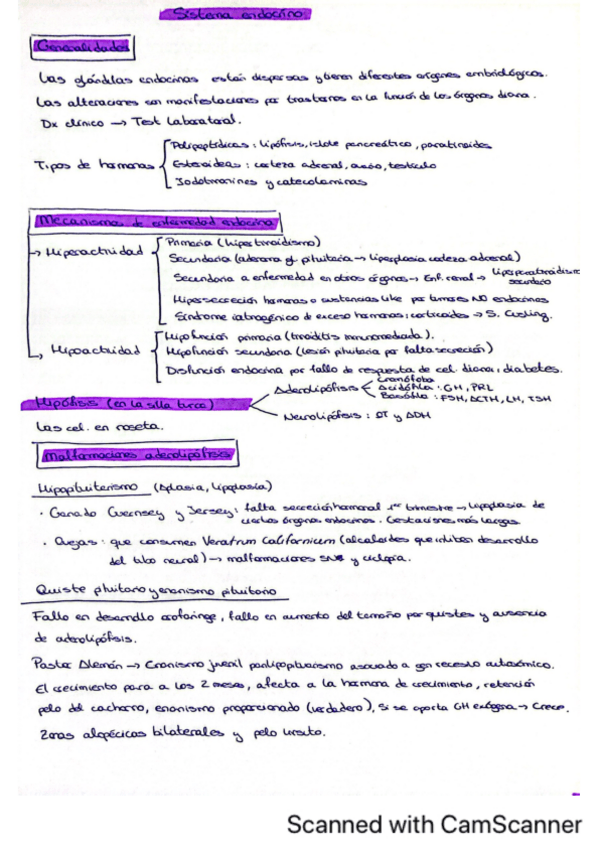 Sistema endocrino
Generalidades
Las glándulas endocrinas están dispersas y tienen diferentes orígenes embriológicos.
Las alteraciones son manifestaciones por trastornos en la función de los órganos diana.
Dx clínico → Test Laboratorial.
Tipos de hormonas
Polipeptídicas: hipófisis, islote pancreático, paratiroides
Esteroideas: corteza adrenal, ovario, testículo
Iodotironines y catecolaminas
Mecanismos de enfermedad endocrina
→ Hiperactividad
Primaria (hipertiroidismo)
Secundaria (adenoma gl. pituitaria → hiperplasia corteza adrenal)
Secundaria a enfermedad en otros órganos → Enf. renal → hiperparatiroidismo secundario
Hipersecreción hormonas o sustancias like por tumores NO endocrinos
Síndrome iatrogénico de exceso hormonas: corticoides → S. Cushing.
→ Hipoactividad
Hipofunción primaria (tiroiditis inmunomediada).
Hipofunción secundaria (lesión pituitaria por falta secreción)
Disfunción endocrina por fallo de respuesta de cel. diana, diabetes.
Hipófisis (en la silla turca)
Adenohipófisis
Cromófoba
Acidófila: GH, PRL
Basófila: FSH, ACTH, LH, TSH
Neurohipófisis: OT y ADH
Las cel. en roseta.
Malformaciones adenohipófisis
Hipopituiterismo (Aplasia, hipoplasia)
· Ganado Guernsey y Jersey: falta secreción hormonal 1er trimestre → hipoplasia de
ciertos órganos endocrinos. Gestaciones más largas
· Ovejas: que consumen Veratrum Californicum (alcaloides que inhiben desarrollo
del tubo neural) → malformaciones y ciclopia.
Quiste pituitario y enanismo pituitario
Fallo en desarrollo orofaringe, fallo en aumento del tamaño por quistes y ausencia
de adenohipófisis.
Pastor Alemán → Enanismo juvenil panhipopituitarismo asociado a gen recesivo autosómico.
El crecimiento para a los 2 meses, afecta a la hormona de crecimiento, retención
pelo del cachorro, enanismo proporcionado (verdadero), si se aporta GH exógena → Crece.
Zonas alopécicas bilaterales y pelo hirsuto.
Scanned with CamScanner